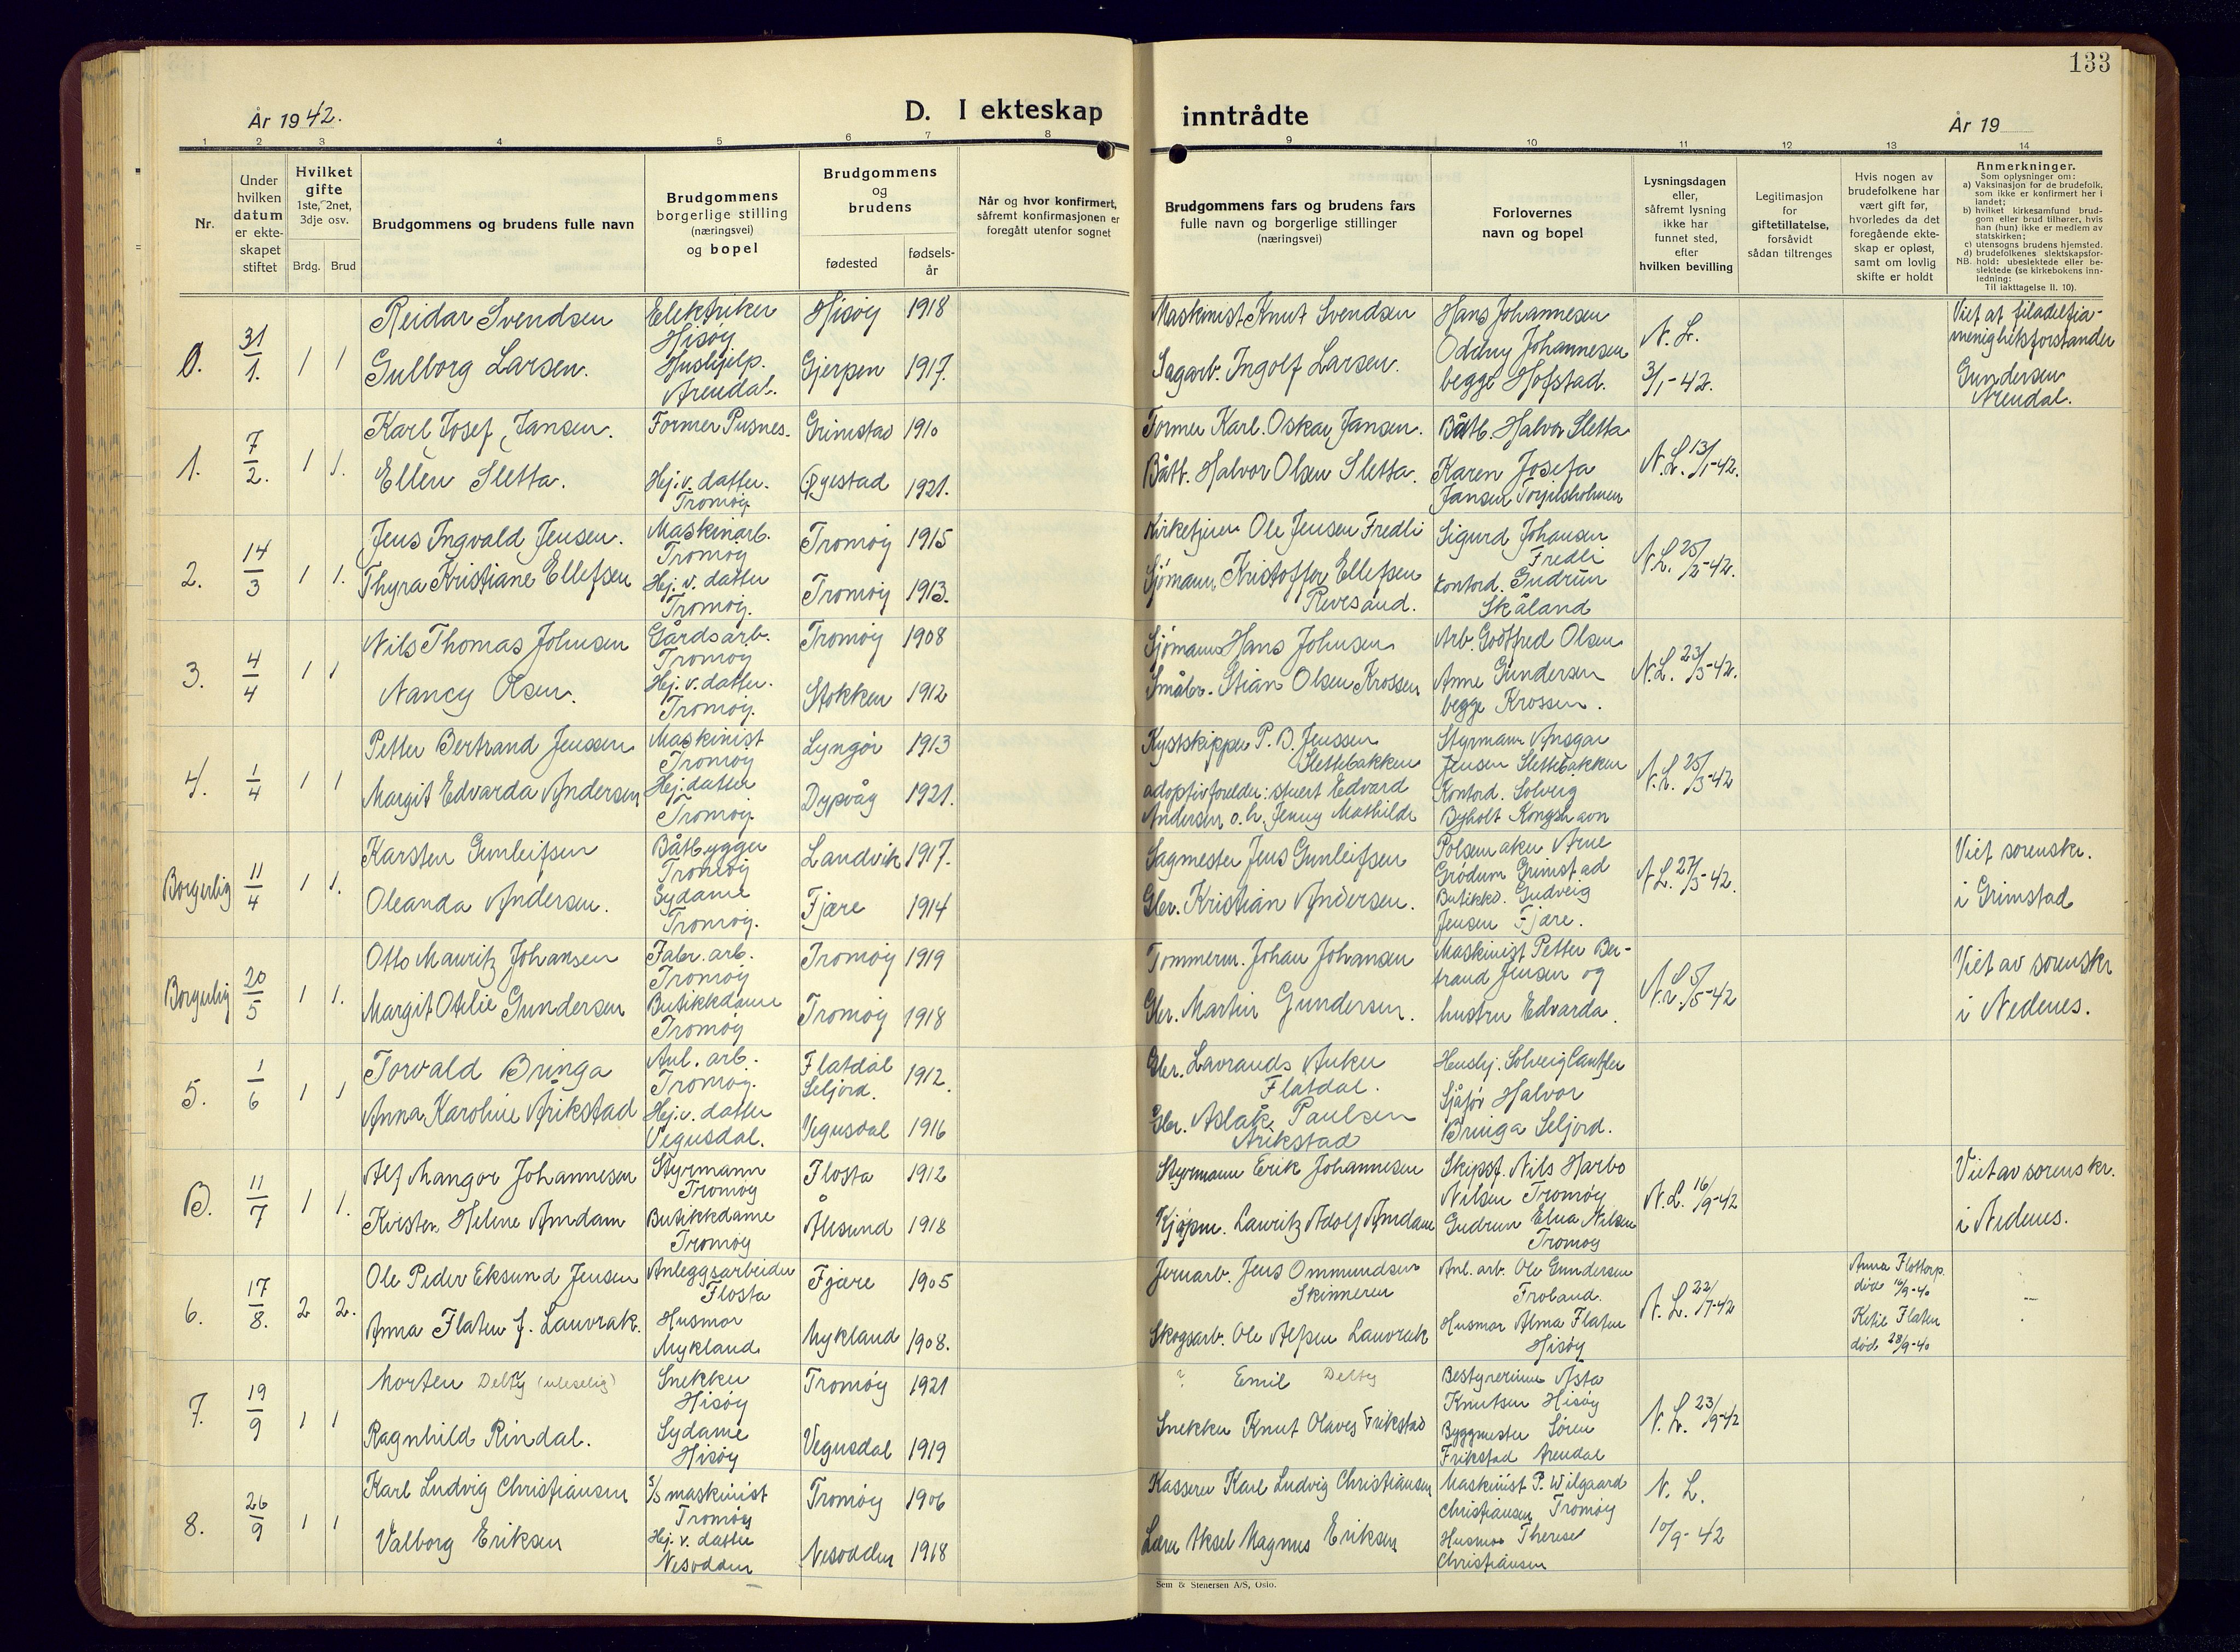 133
År 1942.
D. I ekteskap inntrådte
År 19
1 2 3 4 5 6 7 8 9 10 11 12 13 14
Nr.
Under
hvilken
datum
er ekte-
skapet
stiftet
Hvilket
gifte
1ste, 2net,
3dje osv.
Brdg. Brud
Brudgommens og brudens fulle navn
Brudgommens
borgerlige stilling
(næringsvei)
og bopel
Brudgommens
og
brudens
fødested
fødsels-
år
Når og hvor konfirmert,
såfremt konfirmasjonen er
foregått utenfor sognet
Brudgommens fars og brudens fars
fulle navn og borgerlige stillinger
(næringsvei)
Forlovernes
navn og bopel
Lysningsdagen
eller,
såfremt lysning
ikke har
funnet sted,
efter
hvilken bevilling
Legitimasjon
for
giftetillatelse,
forsåvidt
sådan tiltrenges
Hvis nogen av
brudefolkene har
vært gift før,
hvorledes da det
foregående ekte-
skap er opløst,
samt om lovlig
skifte er holdt
Anmerkninger.
Som oplysninger om:
a) Vaksinasjon for de brudefolk,
som ikke er konfirmert her i
landet;
b) hvilket kirkesamfund brud-
gom eller brud tilhører, hvis
han (hun) ikke er medlem av
statskirken;
c) utensogns brudens hjemsted.
d) brudefolkenes slektskapsfor-
hold: ubeslektede eller be-
slektede (se kirkebokens inn-
ledning:
NB.
Til iakttagelse II. 10).
0. 31/1. 1 1
Reidar Svendsen
Gulborg Larsen.
Elektriker
Hisøy
Hushjelp.
Arendal.
Hisøy 1918
Gjerpen 1917.
Maskinist Knut Svendsen
Sagarb. Ingolf Larsen.
Hans Johannesen
Oddny Johannesen
begge Hofstad.
N. L.
3/1-42.
Viet af filadelfia-
menighetsforstander
Gundersen
Arendal.
1. 7/2. 1 1.
Karl Josef Jansen.
Ellen Sletta.
Former Pusnes.
Hej. v. datter.
Tromøy
Grimstad 1910
Øyestad 1921.
Former Karl Oskar Jansen.
Båtb. Halvor Olsen Sletta.
Båtb. Halvor Sletta
Karen Josefa
Jansen Torjusholmen
N. L. 13/1-42.
2. 14/3 1 1.
Jens Ingvald Jensen.
Thyra Kristiane Ellefsen
Maskinarb.
Tromøy
Hej. v. datter
Tromøy.
Tromøy 1915
Tromøy 1913.
Kirketjener Ole Jensen Fredli
Sjømann Kristoffer Ellefsen
Revesand.
Sigurd Johansen
Fredli
Kontord. Gudrun
Skåland
N. L. 25/2-42.
3. 4/4 1 1
Nils Thomas Johnsen
Nancy Olsen.
Gårdsarb.
Tromøy
Hej. v. datter.
Tromøy.
Tromøy 1908
Stokken 1912
Sjømann Hans Johnsen
Småbr. Stian Olsen Krossen
Arb. Godtfred Olsen
Anne Gundersen
begge Krossen.
N. L. 23/3-42.
4. 1/4 1 1
Petter Bertrand Jenssen
Margit Edvarda Andersen
Maskinist
Tromøy
Hej. datter
Tromøy.
Lyngør 1913
Dypvåg 1921.
Kystskipper P. B. Jenssen
Slettebakken
adoptivforelder: stuert Edvard
Andersen o. h. Jenny Mathilde
Styrmann Ansgar
Jensen Slettebakken
Kontord. Solveig
Byholt Kongshavn
N. L. 25/3-42
Borgerlig 11/4 1 1.
Karsten Gunleifsen
Oleanda Andersen.
Båtbygger
Tromøy
Sydame
Tromøy.
Landvik 1917.
Fjære 1914
Sagmester Jens Gunleifsen
Gbr. Kristian Andersen.
Pølsemaker Arne
Grødum Grimstad
Butikkd. Gudveig
Jensen Fjære.
N. L. 27/3-42.
Viet sorenskr.
i Grimstad
Borgerlig 20/5 1 1.
Otto Mauritz Johansen
Margit Otelie Gundersen
Fabr. arb.
Tromøy
Butikkdame
Tromøy
Tromøy 1919
Tromøy 1918
Tømmerm. Johan Johansen
Gbr. Martin Gundersen.
Maskinist Petter Ber-
trand Jensen og
hustru Edvarda.
N. L. 5/5-42
Viet av sorenskr
i Nedenes.
5. 1/6 1 1
Torvald Bringa
Anna Karoline Årikstad
Anl. arb.
Tromøy.
Hej. v. datter
Vegusdal.
Flatdal
Seljord. 1912.
Vegusdal 1916
Gbr. Lavrands Anker
Flatdal.
Gbr. Aslak Paulsen
Årikstad
Hushj. Solveig
Sjåfør Halvor
Bringa Seljord.
B. 11/7 1 1.
Alf Mangor Johannesen
Kirsten Helene Amdam
Styrmann
Tromøy
Butikkdame
Tromøy
Flosta 1912
Ålesund 1918
Styrmann Erik Johannesen
Kjøpm. Lauritz Adolf Amdam
Skipsf. Nils Harbo
Nilsen Tromøy
Gudrun Elna Nilsen
Tromøy
N. L. 16/9-42
Viet av sorenskr.
i Nedenes.
6. 17/8. 2 2.
Ole Peder Eksund Jensen
Anna Flaten f. Lauvrak.
Anleggsarbeider
Flosta
Husmor
Mykland
Fjære 1905
Mykland 1908.
Jernarb. Jens Ommundsen
Skinneren
Skogsarb. Ole Alfsen Lauvrak
Anl. arb. Ole Gundersen
Froland.
Husmor Alma Flaten
Hisøy
N. L. 22/7-42
Anna Flottorp.
død 16/9-40
Ketil Flaten
død 28/9-40
7. 19/9 1 1
Morten Delty (uleselig)
Ragnhild Rindal.
Snekker
Hisøy
Sydame
Hisøy
Tromøy 1921
Vegusdal 1919
? Emil Delty
Snekker Knut Olaves Frikstad
Bestyrerinne Åsta
Knutsen Hisøy
Byggmester Søren
Frikstad Arendal
N. L. 23/9-42
8. 26/9 1 1
Karl Ludvig Christiansen
Valborg Eriksen
S/S maskinist
Tromøy
Hej. v. datter
Nesodden
Tromøy 1906
Nesodden 1918
Kasserer Karl Ludvig Christiansen
Lærer Aksel Magnus Eriksen
Maskinist P. Wilgaard
Christiansen Tromøy
Husmor Therese
Christiansen
N. L.
10/9-42
Sem & Stenersen A/S, Oslo.